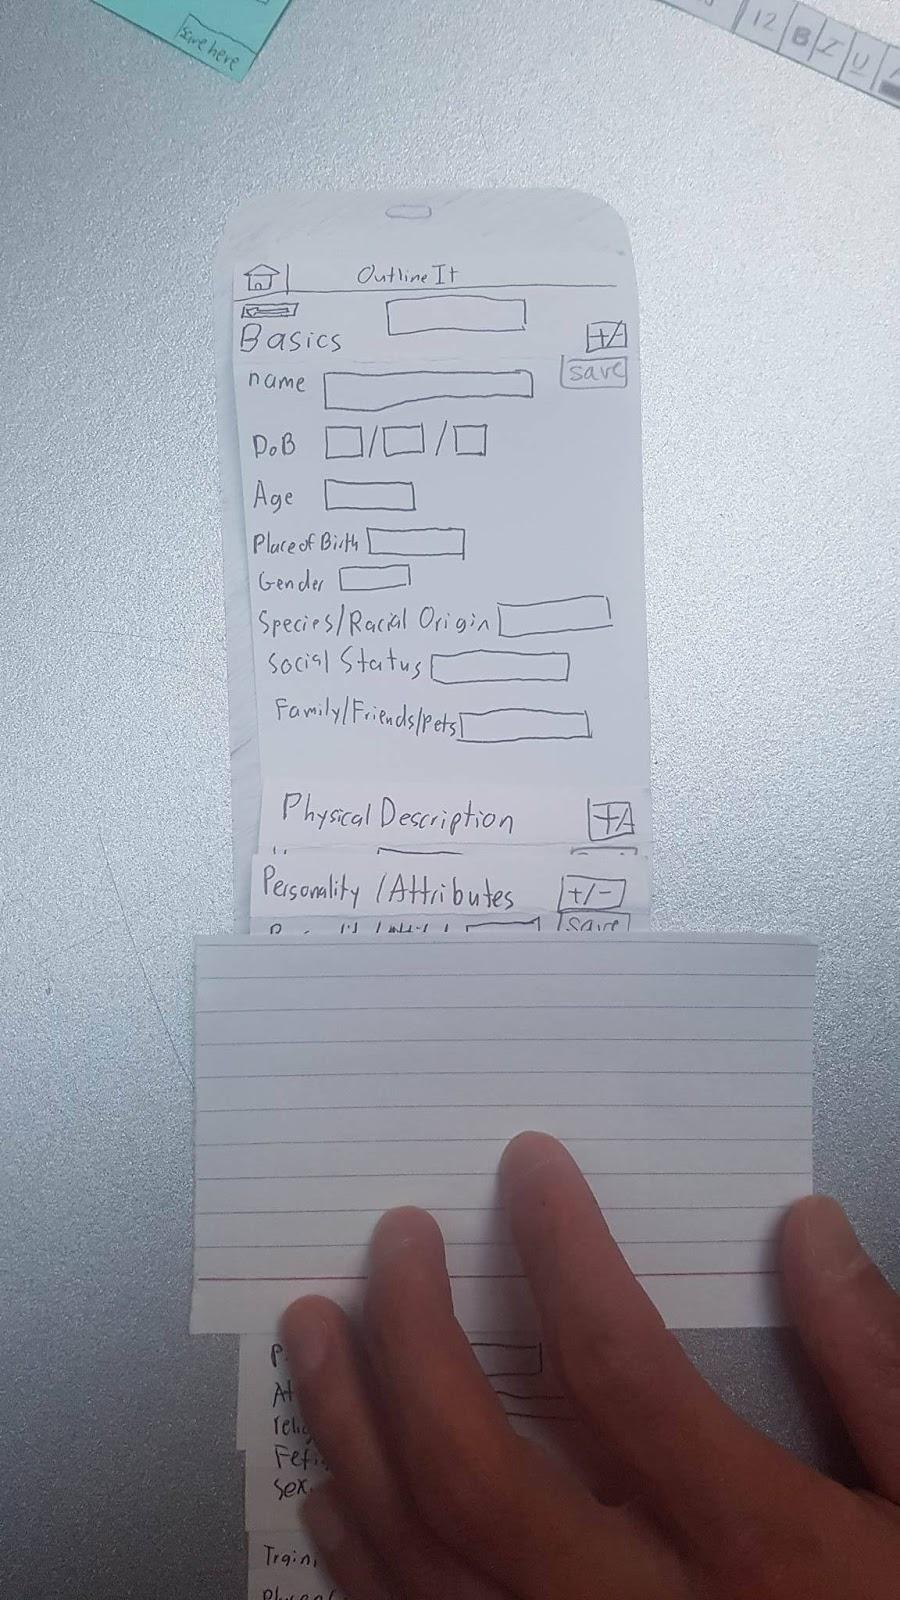 save here
12 B I U
Outline It
Basics
+/-
save
name
DoB / /
Age
Place of Birth
Gender
Species/Racial Origin
Social Status
Family/Friends/Pets
Physical Description
Personality/Attributes +/-
save
Traini